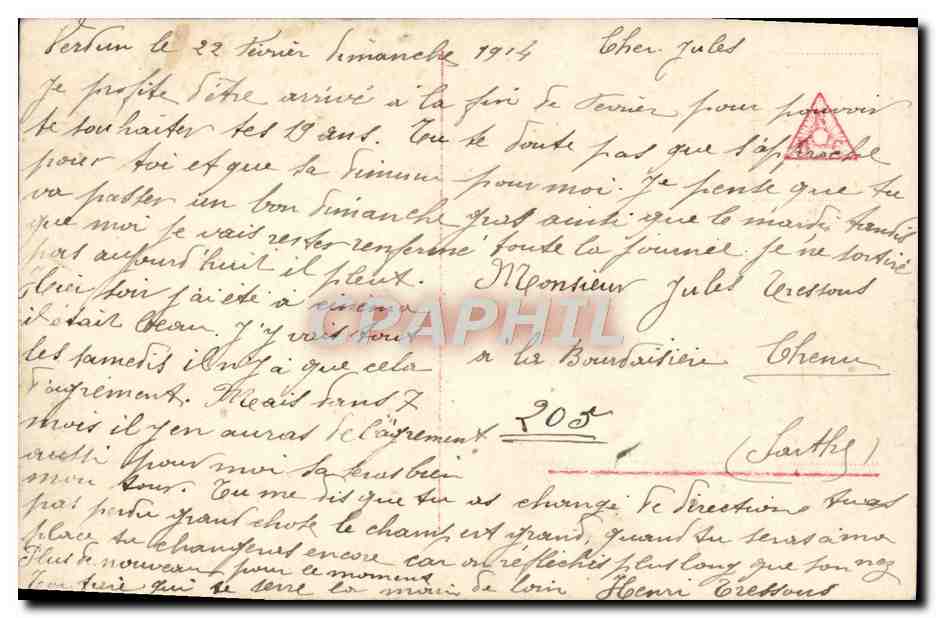 Verdun le 22 Février dimanche 1914 Cher Jules
Je profite d'être arrivé à la fin de Fevrier pour pouvoir
te souhaiter tes 19 ans. Tu te doute pas que s'approche
pour toi et que sa diminu pour moi. Je pense que tu
va passer un bon dimanche gras ainsi que le mardi tandis
que moi je vais rester renfermé toute la journeé je ne sortiré
pas aujourd'huit il pleut.
Hier soir j'ai été à cinéma
il était beau. J'y vais tout
les samedis il n'y à que cela
d'agrement. Mais dans 7
mois il y en auras de l'agrement
aussi pour moi sa eras bien
mon tour. Tu me dis que tu as change de direction tu as
pas perdu grand chose le champ est grand, quand tu seras à ma
place tu changeras encore car on réflechis plus long que son nez
Plus de nouveau pour ce moment
qui te serre la main de loin Henri Tressous
Monsieur Jules Tressous
a la Bourdaisiere Chenu
205
(Sarthe)
CPAPHIL